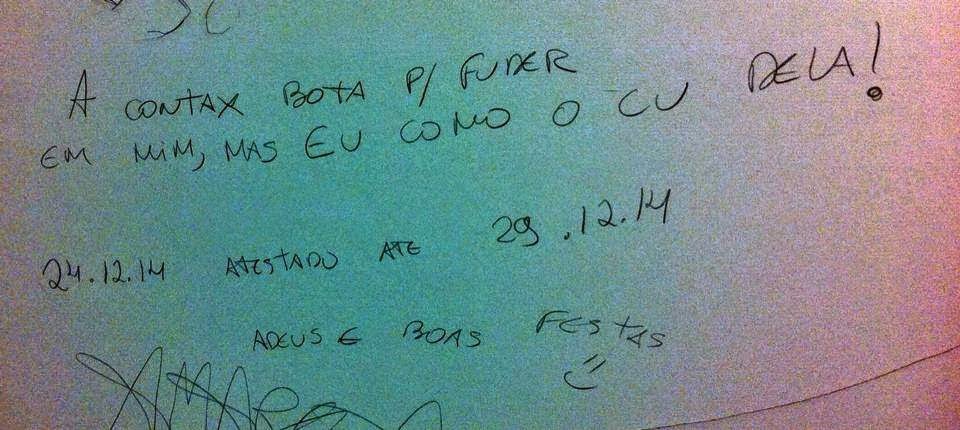 A CONTAX BOTA P/ FUDER
EM MIM, MAS EU COMO O CU DELA!
24.12.14 ATESTADO ATE 29.12.14
ADEUS E BOAS FESTAS